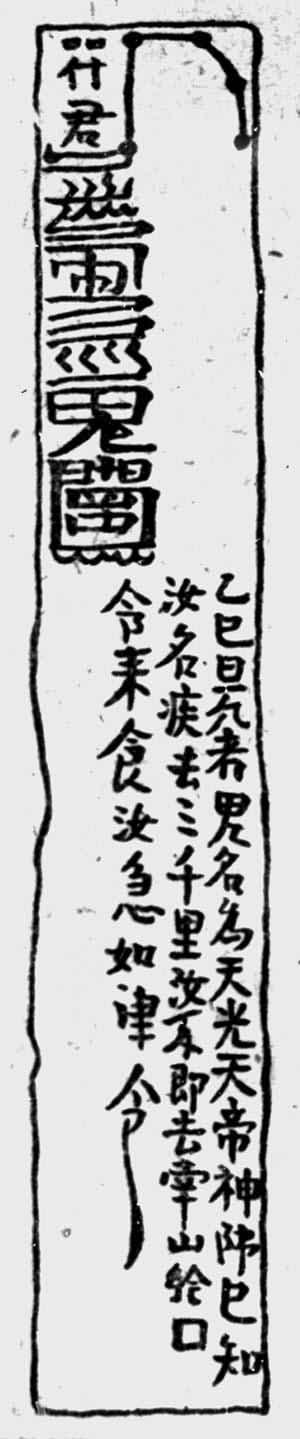 符君
乙巳日死者鬼名為天光天帝神師已知
汝名疾去三千里汝不即去南山給□
令来食汝急如律令